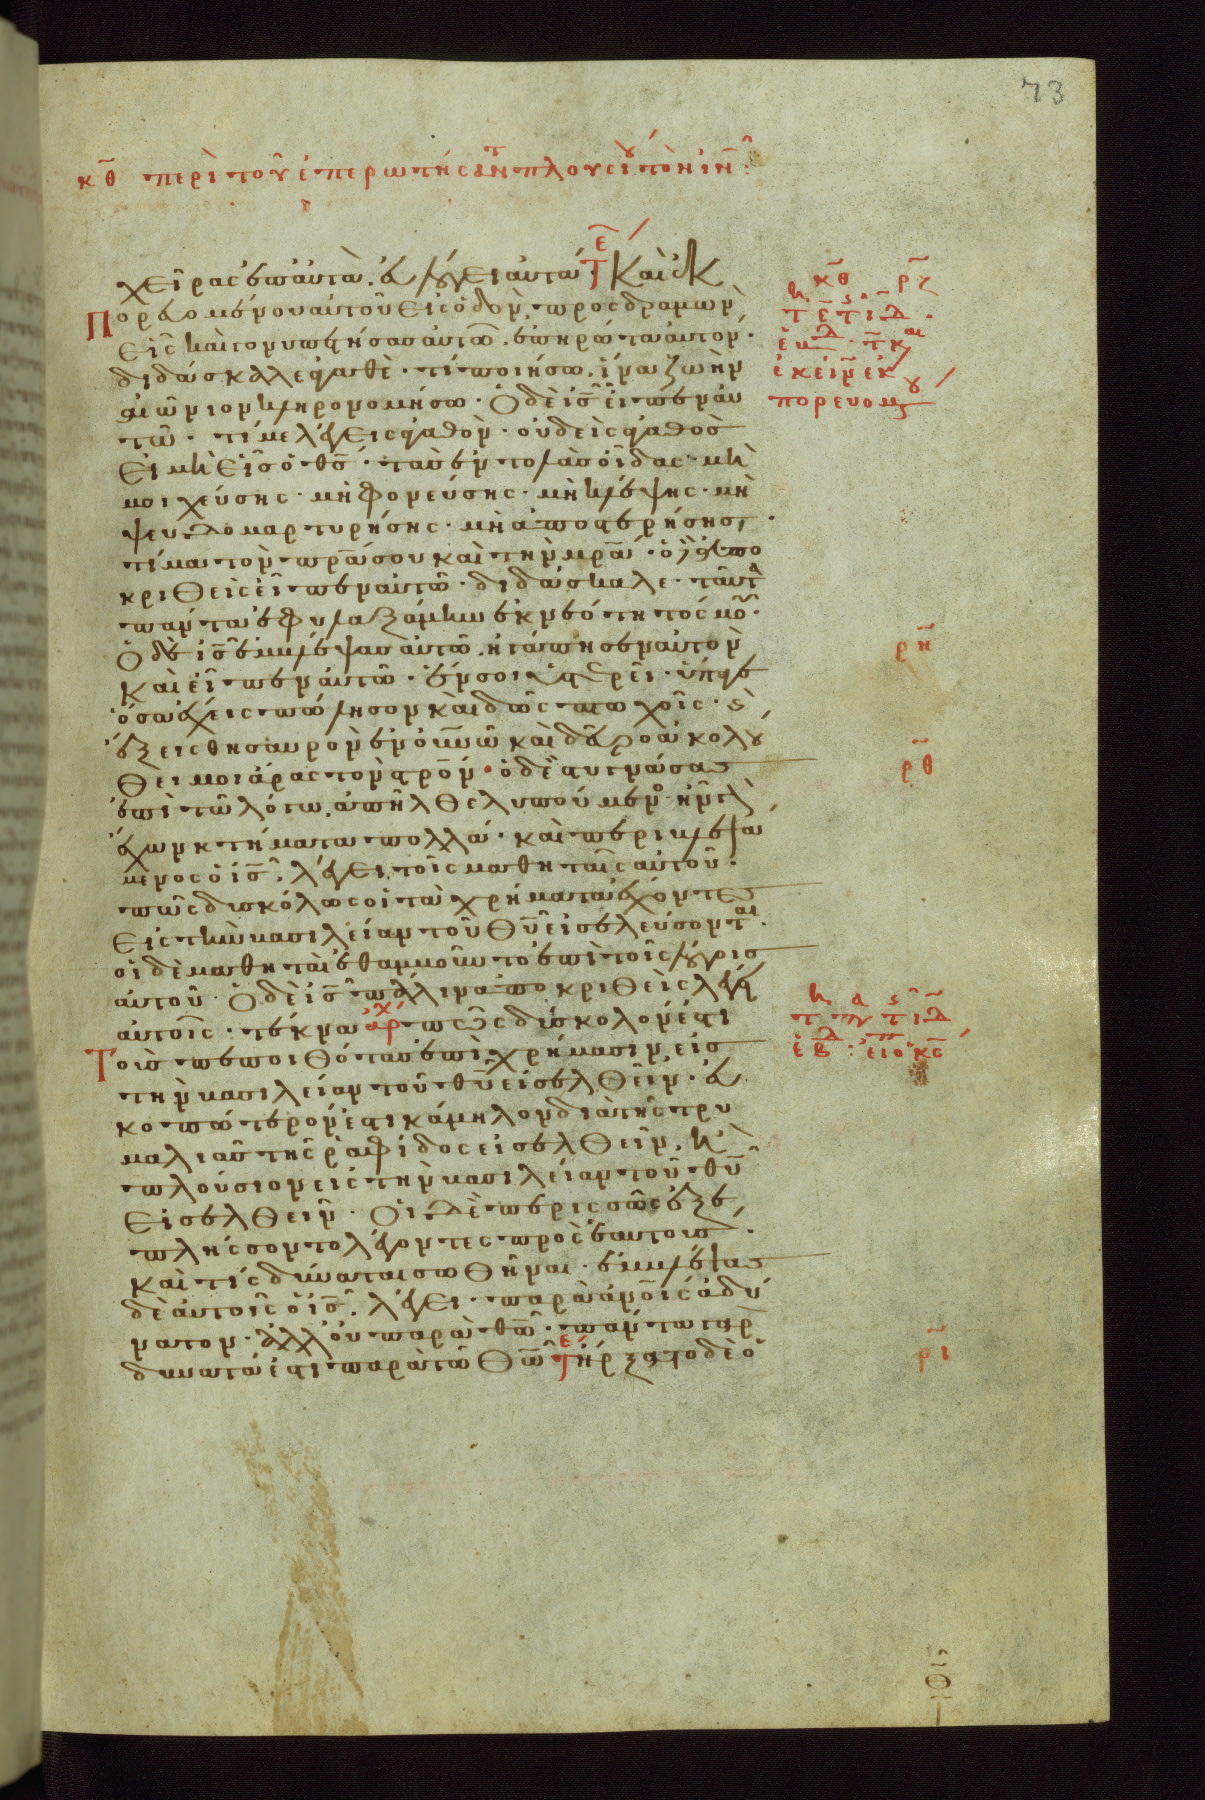 κθ περὶ τοῦ ἐπερωτήσαντ πλουσίου τὸν ιν
χεῖρας ἐπ αὐτὰ. εὐλόγει αὐτά· τε Καὶ ἐκ
Πορευομένου αὐτοῦ εἰς ὁδὸν, προσδραμὼν
εἷς καὶ γονυπετήσας αὐτῶ. ἐπηρώτα αὐτὸν·
διδάσκαλε ἀγαθὲ· τί ποιήσω. ἵνα ζωὴν
αἰώνιον κληρονομήσω· Ὁ δὲ ις εἶπεν αὐ
τῶ· τί με λέγεις ἀγαθὸν· οὐδεὶς ἀγαθὸς
εἰ μὴ εἷς ὁ θς· τὰς ἐντολὰς οἶδας· μὴ
μοιχεύσης· μὴ φονεύσης· μὴ κλέψης· μὴ
ψευδομαρτυρήσης· μὴ ἀποστερήσης·
τίμα τὸν πρα σου καὶ τὴν μρα· ὁ δὲ ἀπο
κριθεὶς εἶπεν αὐτῶ· διδάσκαλε· ταῦτα
πάντα ἐφυλαξάμην ἐκ νεότητός μου·
Ὁ δὲ ις ἐμβλέψας αὐτῶ. ἠγάπησεν αὐτὸν
καὶ εἶπεν αὐτῶ· ἕν σοι ὑστερεῖ· ὕπαγε
ὅσα ἔχεις πώλησον καὶ δὸς πτωχοῖς· κ
ἕξεις θησαυρὸν ἐν ουνω καὶ δεῦρο ἀκολού
θει μοι ἄρας τὸν στρον· ὁ δὲ στυγνάσας
ἐπὶ τῶ λόγω. ἀπῆλθε λυπούμενος· ἦν γὰρ
ἔχων κτήματα πολλά· καὶ περιβλεψά
μενος ὁ ις. λέγει τοῖς μαθηταῖς αὐτοῦ·
πῶς δυσκόλως οἱ τὰ χρήματα ἔχοντες
εἰς τὴν βασιλείαν τοῦ θυ εἰσελεύσονται·
οἱ δὲ μαθηταὶ ἐθαμβοῦντο ἐπὶ τοῖς λόγοις
αὐτοῦ· Ὁ δὲ ις πάλιν ἀποκριθεὶς λέγει
αὐτοῖς· τέκνα ἀρχ πῶς δύσκολόν ἐστι
Τοὺς πεποιθότας ἐπὶ χρήμασιν εἰς
τὴν βασιλείαν τοῦ θυ εἰσελθεῖν· εὐ
κοπώτερόν ἐστι κάμηλον διὰ τῆς τρυ
μαλιᾶς τῆς ῥαφίδος εἰσελθεῖν, ἢ
πλούσιον εἰς τὴν βασιλείαν τοῦ θυ
εἰσελθεῖν· Οἱ δὲ περισσῶς ἐξε
πλήσσοντο λέγοντες πρὸς ἑαυτούς·
καὶ τίς δύναται σωθῆναι· ἐμβλέψας
δὲ αὐτοῖς ὁ ις. λέγει· παρὰ ανοις ἀδύ
νατον· ἀλλ οὐ παρὰ θω· πάντα γὰρ
δυνατά ἐστι παρὰ τῶ θω τε ἤρξατο δὲ ὁ
κθ ρζ
ρη
ρθ
ρι
73